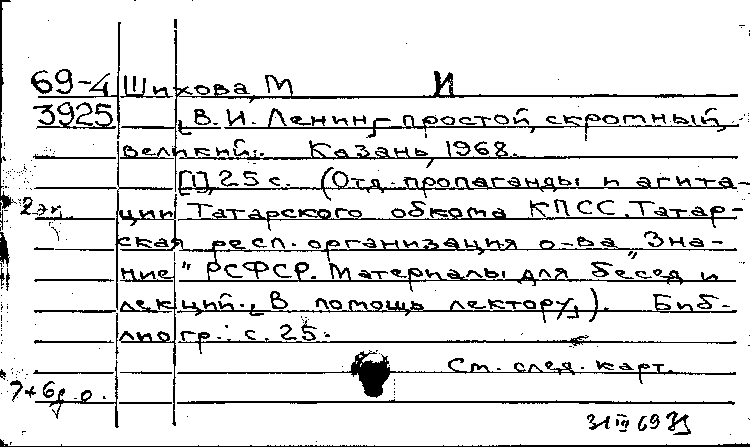 69-4 Шихова, М И
3925 В. И. Ленин - простой, скромный,
великий. Казань, 1968.
[1], 25 с. (Отд. пропаганды и агита-
2 эк. ции Татарского обкома КПСС. Татар-
ская респ. организация о-ва „Зна-
ние" РСФСР. Материалы для бесед и
лекций. [В помощь лектору]). Биб-
лиогр.: с. 25.
См. след. карт.
7+6д.о.
31 III 69